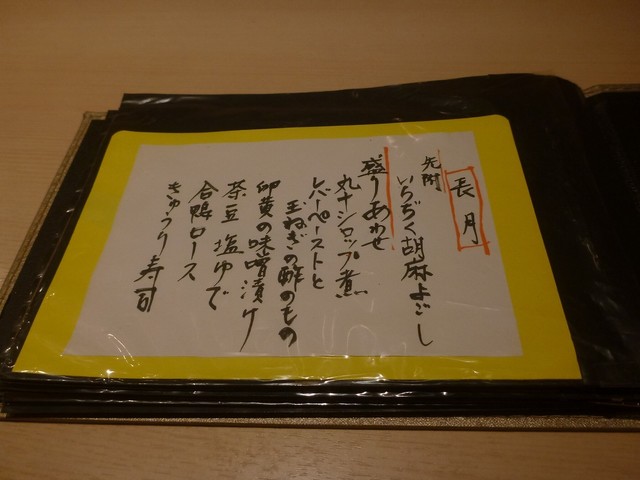 長月
先附
いちぢく胡麻よごし
盛りあわせ
丸十シロップ煮
レバーペーストと
玉ねぎの酢のもの
卵黄の味噌漬け
茶豆塩ゆで
合鴨ロース
きゅうり寿司